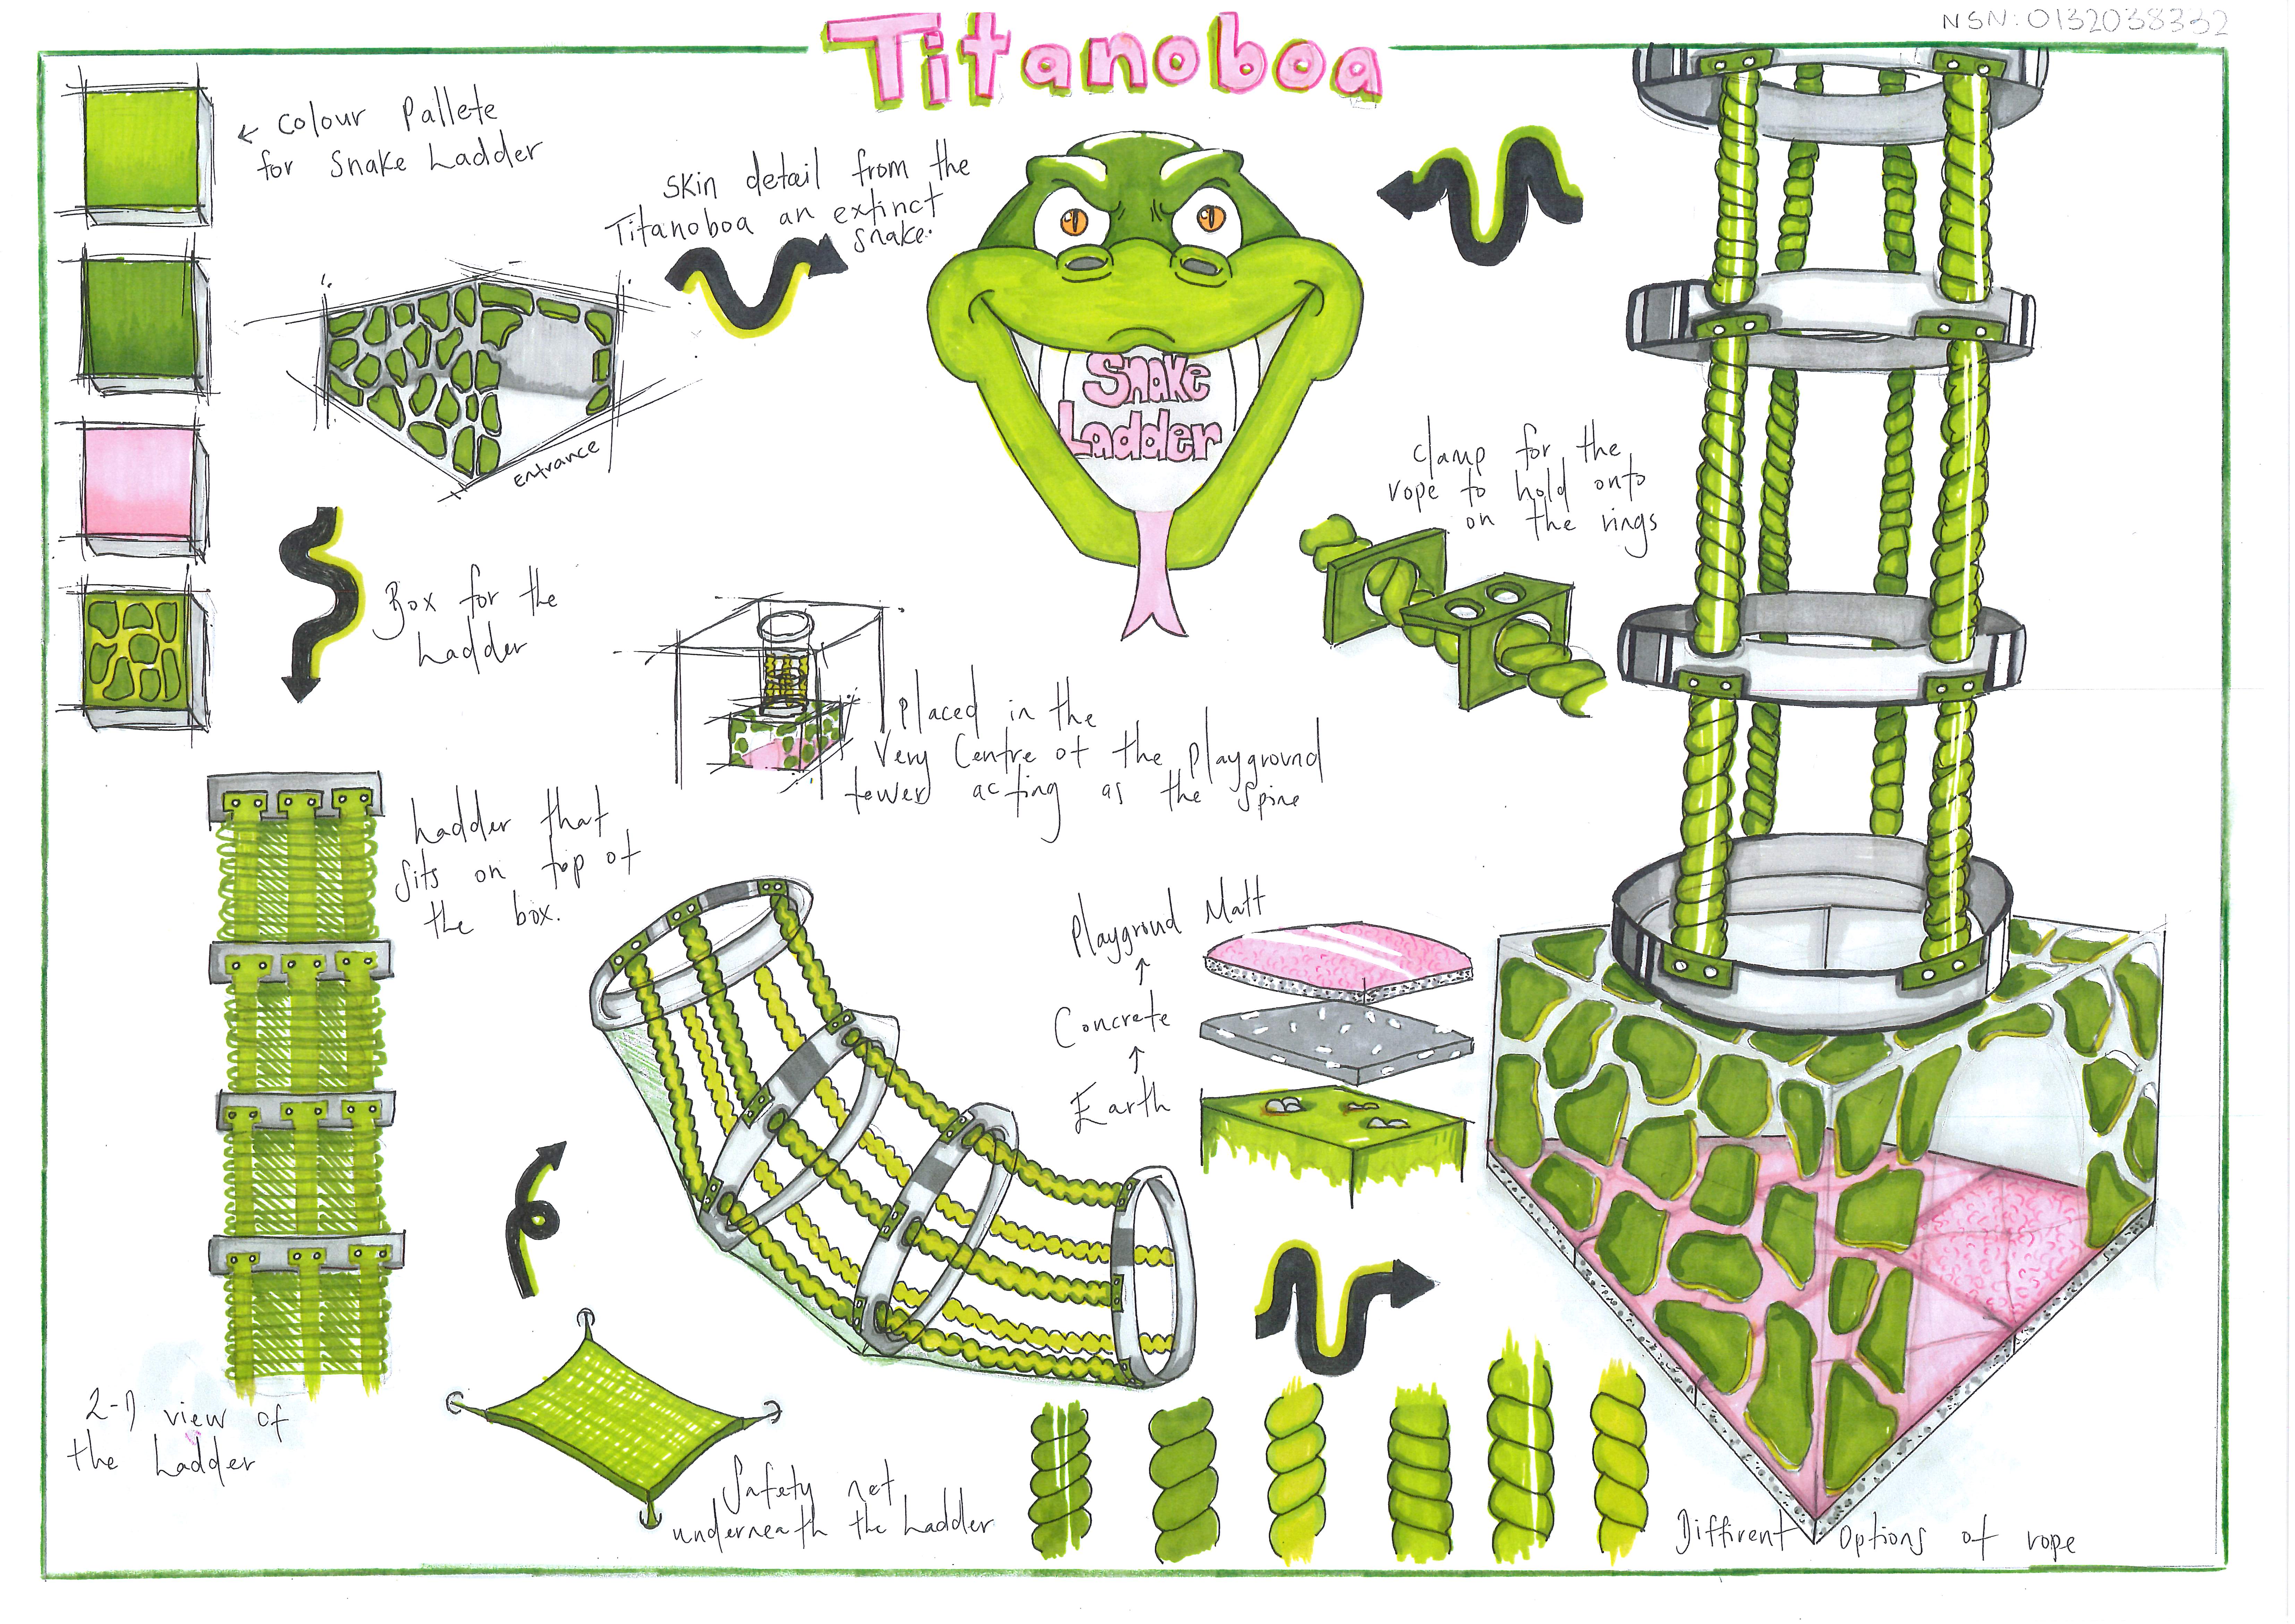 NSN: 0132038332
Titanoboa
← Colour Pallete
for Snake Ladder
Skin detail from the
Titanoboa an extinct
snake.
Snake
Ladder
entrance
clamp for the
rope to hold onto
on the rings
Box for the
Ladder
Placed in the
Very Centre of the playground
tower acting as the spine
Ladder that
sits on top of
the box.
Playground Matt
Concrete
Earth
2-D view of
the Ladder
Safety net
underneath the Ladder
Diffirent Options of rope